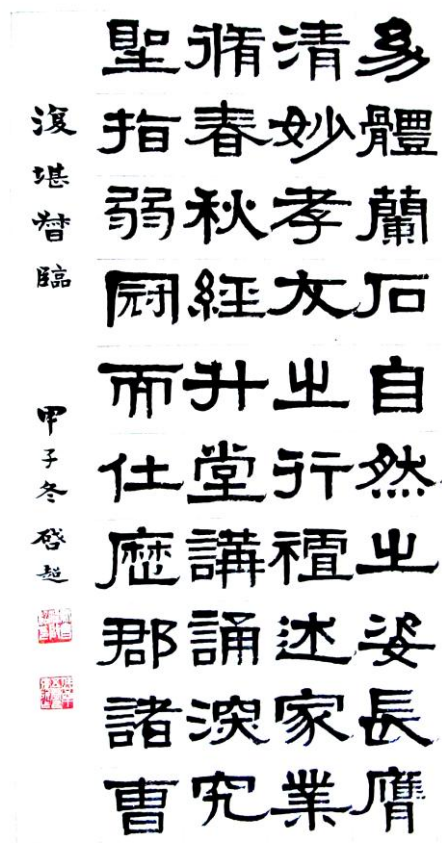 體蘭石自然之姿長膺
清妙孝友之行述家業
脩春秋經升堂講誦深究
聖指弱冠而仕歷郡諸曹
復堪督臨 甲子冬 啓超